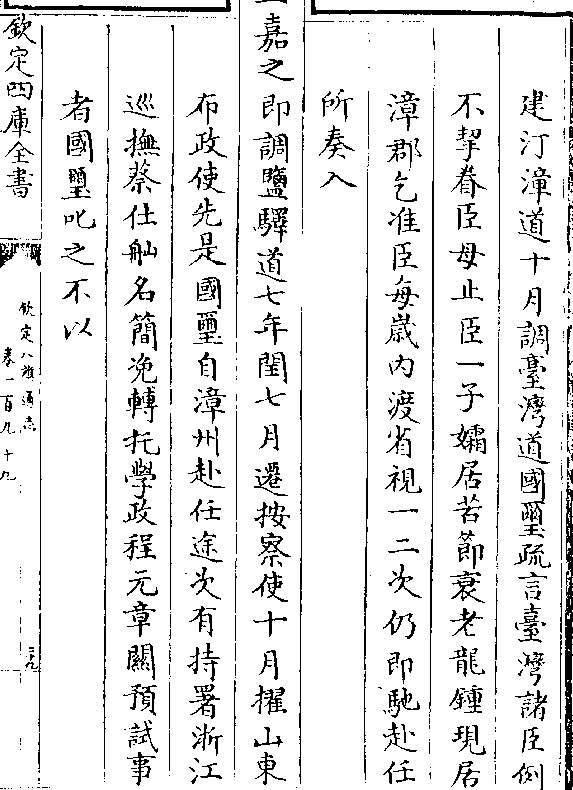 建汀漳道十月調臺灣道國璽疏言臺灣諸臣例
不挈眷臣母止臣一子孀居苦節衰老龍鍾現居
漳郡乞准臣每歲内渡省視一二次仍即馳赴任
所奏入
嘉之即調鹽驛道七年閏七月遷按察使十月擢山東
布政使先是國璽自漳州赴任途次有持署浙江
巡撫蔡仕舢名簡浼轉托學政程元章關預試事
者國璽叱之不以
欽定四庫全書
欽定八旗通志
卷一百九十九
三九